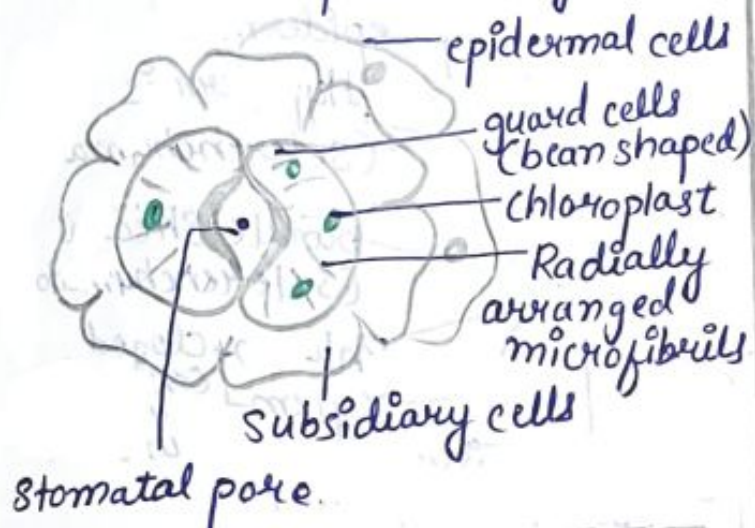 epidermal cells
guard cells
(bean shaped)
Chloroplast
Radially
arranged
microfibrils
Subsidiary cells
Stomatal pore.